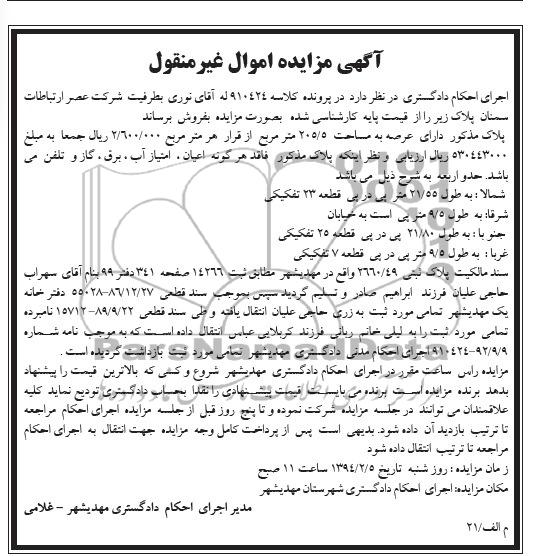 آگهی مزایده اموال غیرمنقول
اجرای احکام دادگستری در نظر دارد در پرونده کلاسه ۹۱۰۴۲۴ له آقای نوری بطرفیت شرکت عصر ارتباطات
سمنان پلاک زیر را از قیمت پایه کارشناسی شده بصورت مزایده بفروش برساند
پلاک مذکور دارای عرصه به مساحت ۲۰۵/۵ متر مربع از قرار هر متر مربع ۲/۶۰۰/۰۰۰ ریال جمعا به مبلغ
۵۳۰۴۴۳۰۰۰ ریال ارزیابی و نظر اینکه پلاک مذکور فاقد هر گونه اعیان ، امتیاز آب ، برق ، گاز و تلفن می
باشد. حدو اربعه به شرح ذیل می باشد
شمالا : به طول ۲۱/۵۵ متر پی در پی قطعه ۲۳ تفکیکی
شرقا: به طول ۹/۵ متر پی است به خیابان
جنو با : به طول ۲۱/۸۰ پی در پی قطعه ۲۵ تفکیکی
غربا : ۹/۵ متر پی در پی قطعه ۷ تفکیکی
سند مالکیت پلاک ثبتی ۲۶۶۰/۴۹ واقع در مهدیشهر مطابق ثبت ۱۴۲۶۶ صفحه ۳۴۱ دفتر ۹۹ بنام آقای سهراب
حاجی علیان فرزند ابراهیم صادر و تسلیم گردید سپس بموجب سند قطعی ۸۶/۱۲/۲۷-۵۵۰۲۸ دفتر خانه
یک مهدیشهر تمامی مورد ثبت به زری حاجی علیان انتقال یافته و طی سند قطعی ۸۹/۹/۲۲-۱۵۷۱۲ نامبرده
تمامی مورد ثبت را به لیلی خانم ربانی فرزند کربلایی عباس انتقال داده است که به موجب نامه شماره
۹۱۰۴۲۴-۹۲/۹/۹ اجرای احکام مدنی دادگستری مهدیشهر تمامی مورد ثبت بازداشت گردیده است .
مزایده راس ساعت مقرر در اجرای احکام دادگستری مهدیشهر شروع و کسی که بالاترین قیمت را پیشنهاد
بدهد برنده مزایده است برنده می بایست قیمت پیشنهادی را نقدا بحساب دادگستری تودیع نماید کلیه
علاقمندان می توانند در جلسه مزایده شرکت نموده و تا پنج روز قبل از جلسه مزایده اجرای احکام مراجعه
تا ترتیب بازدید آن داده شود. بدیهی است پس از پرداخت کامل وجه مزایده جهت انتقال به اجرای احکام
مراجعه تا ترتیب انتقال داده شود
ز مان مزایده : روز شنبه تاریخ ۱۳۹۴/۲/۵ ساعت ۱۱ صبح
مکان مزایده: اجرای احکام دادگستری شهرستان مهدیشهر
مدیر اجرای احکام دادگستری مهدیشهر – غلامی
م الف/۲۱
ParsNamadData